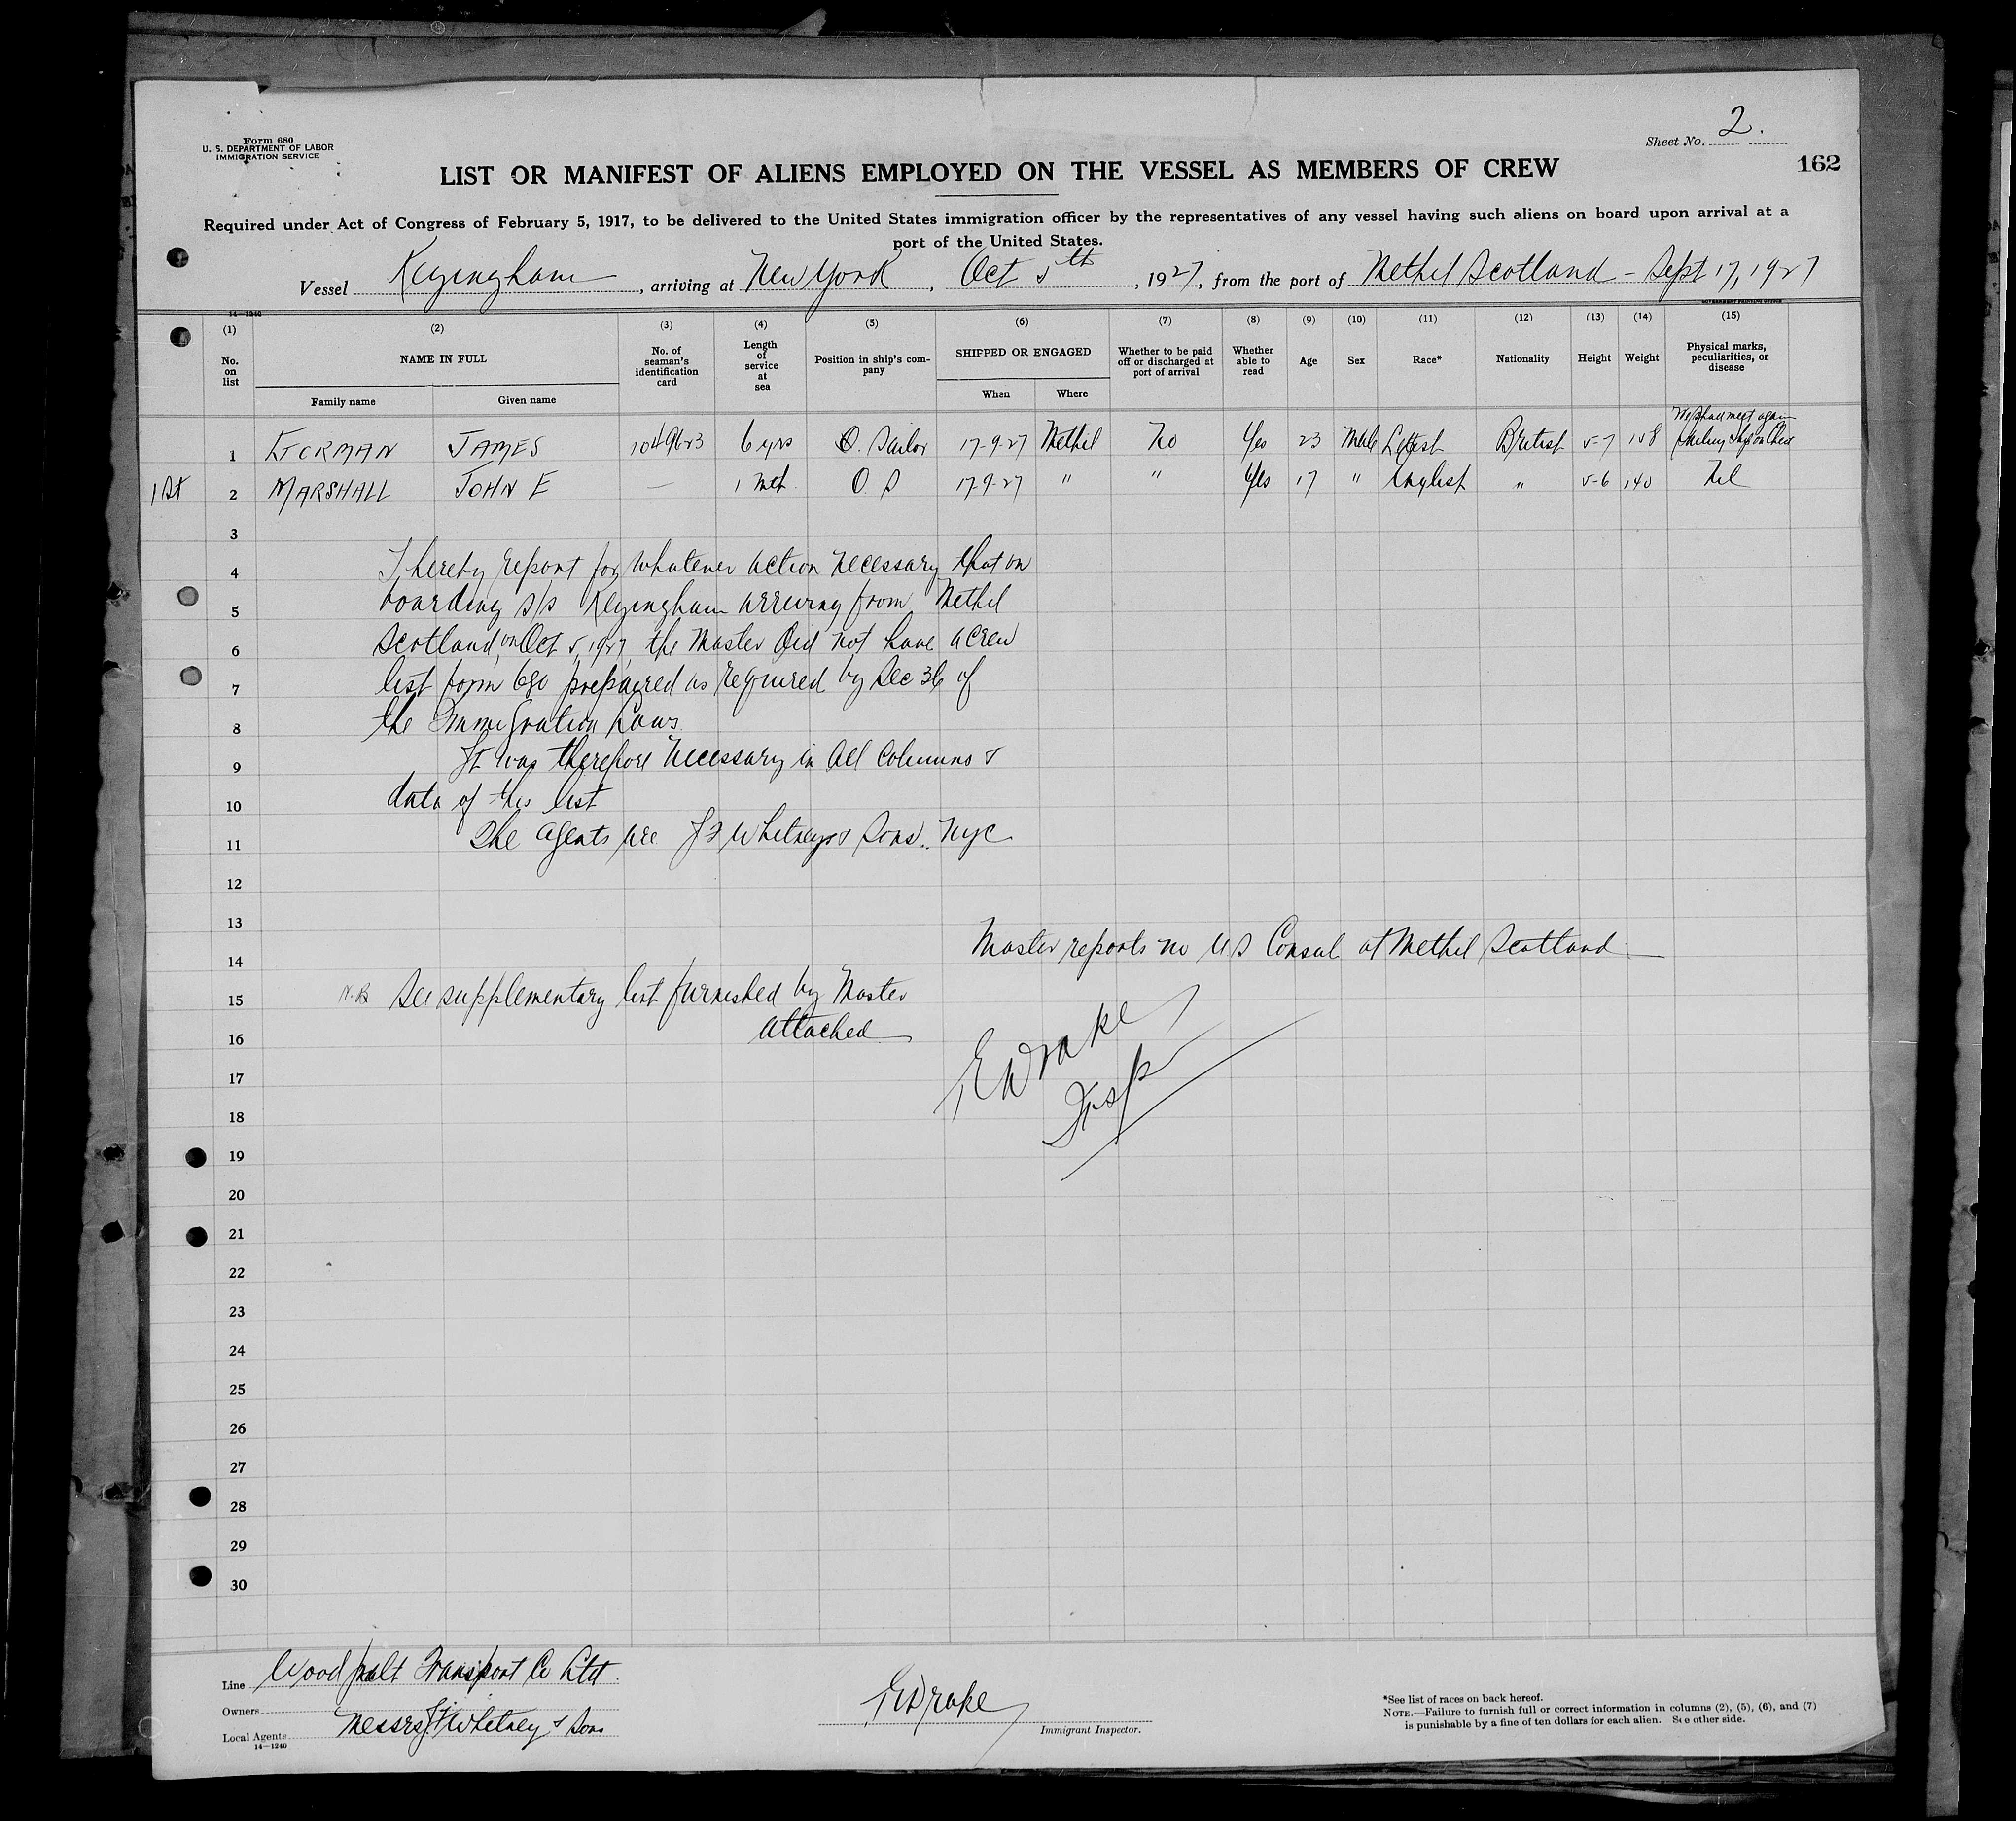 Form 680
U. S. DEPARTMENT OF LABOR
IMMIGRATION SERVICE
Sheet No. 2.
162
LIST OR MANIFEST OF ALIENS EMPLOYED ON THE VESSEL AS MEMBERS OF CREW
Required under Act of Congress of February 5, 1917, to be delivered to the United States immigration officer by the representatives of any vessel having such aliens on board upon arrival at a
port of the United States.
Vessel Keyingham, arriving at New York, Oct 5th, 1927, from the port of Methil Scotland - Sept 17, 1927
14—1240
(1) (2) (3) (4) (5) (6) (7) (8) (9) (10) (11) (12) (13) (14) (15)
No. on list NAME IN FULL Family name Given name No. of seaman's identification card Length of service at sea Position in ship's company SHIPPED OR ENGAGED When Where Whether to be paid off or discharged at port of arrival Whether able to read Age Sex Race* Nationality Height Weight Physical marks, peculiarities, or disease
1 JAMES 1049623 6 yrs O. Sailor 17-9-27 Methil No Yes 23 Male British 5-7 158 We shall meet again
1st 2 MARSHALL JOHN E — 1 mth O S 17-9-27 " " Yes 17 " English " 5-6 140 Nil
3
4 I hereby report for whatever action necessary that on
5 boarding s/s Keyingham arriving from Methil
6 Scotland, on Oct 5, 1927, the Master did not have a crew
7 list form 680 prepaired as required by Sec 36 of
8 the Immigration Laws.
9 It was therefore necessary in all columns &
10 data of this list
11 The Agents are J F Whitney & Sons. NYC
12
13
Master reports no US Consul at Methil Scotland
14
15 N.B See supplementary list furnished by Master
16 attached
E Drake
Insp
17
18
19
20
21
22
23
24
25
26
27
28
29
30
Line Wood Transport Co Ltd.
Owners
Local Agents Messrs J F Whitney & Sons
14—1240
E Drake
Immigrant Inspector.
*See list of races on back hereof.
NOTE.—Failure to furnish full or correct information in columns (2), (5), (6), and (7)
is punishable by a fine of ten dollars for each alien. See other side.